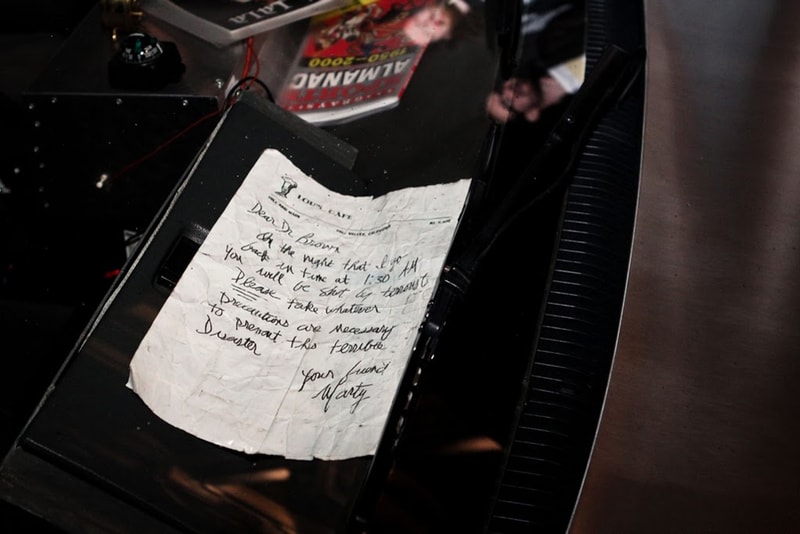 ALMANAC
1950-2000
LOU'S CAFE
HILL VALLEY, CALIFORNIA
Dear Dr Brown
On the night that I go
back in time at 1:30 AM
You will be shot by terrorist
Please take whatever
precautions are necessary
to prevent this terrible
Disaster
Your friend
Marty